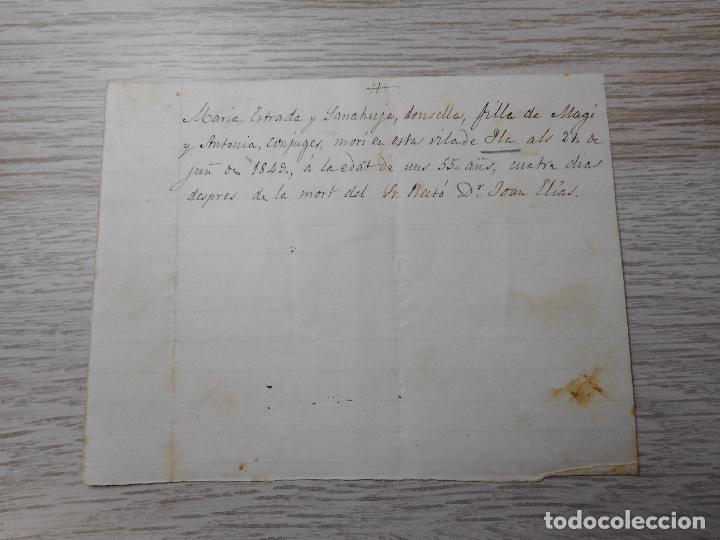 Maria Estrada y Sanahuja, donsella, filla de Magi
y Antonia, conjuges, morí en esta vila de Pla als 21 de
juñ de 1849, á la edat de uns 35 añs, cuatre dias
despres de la mort del Sr. Rectó Dr. Joan Elías.
todocoleccion